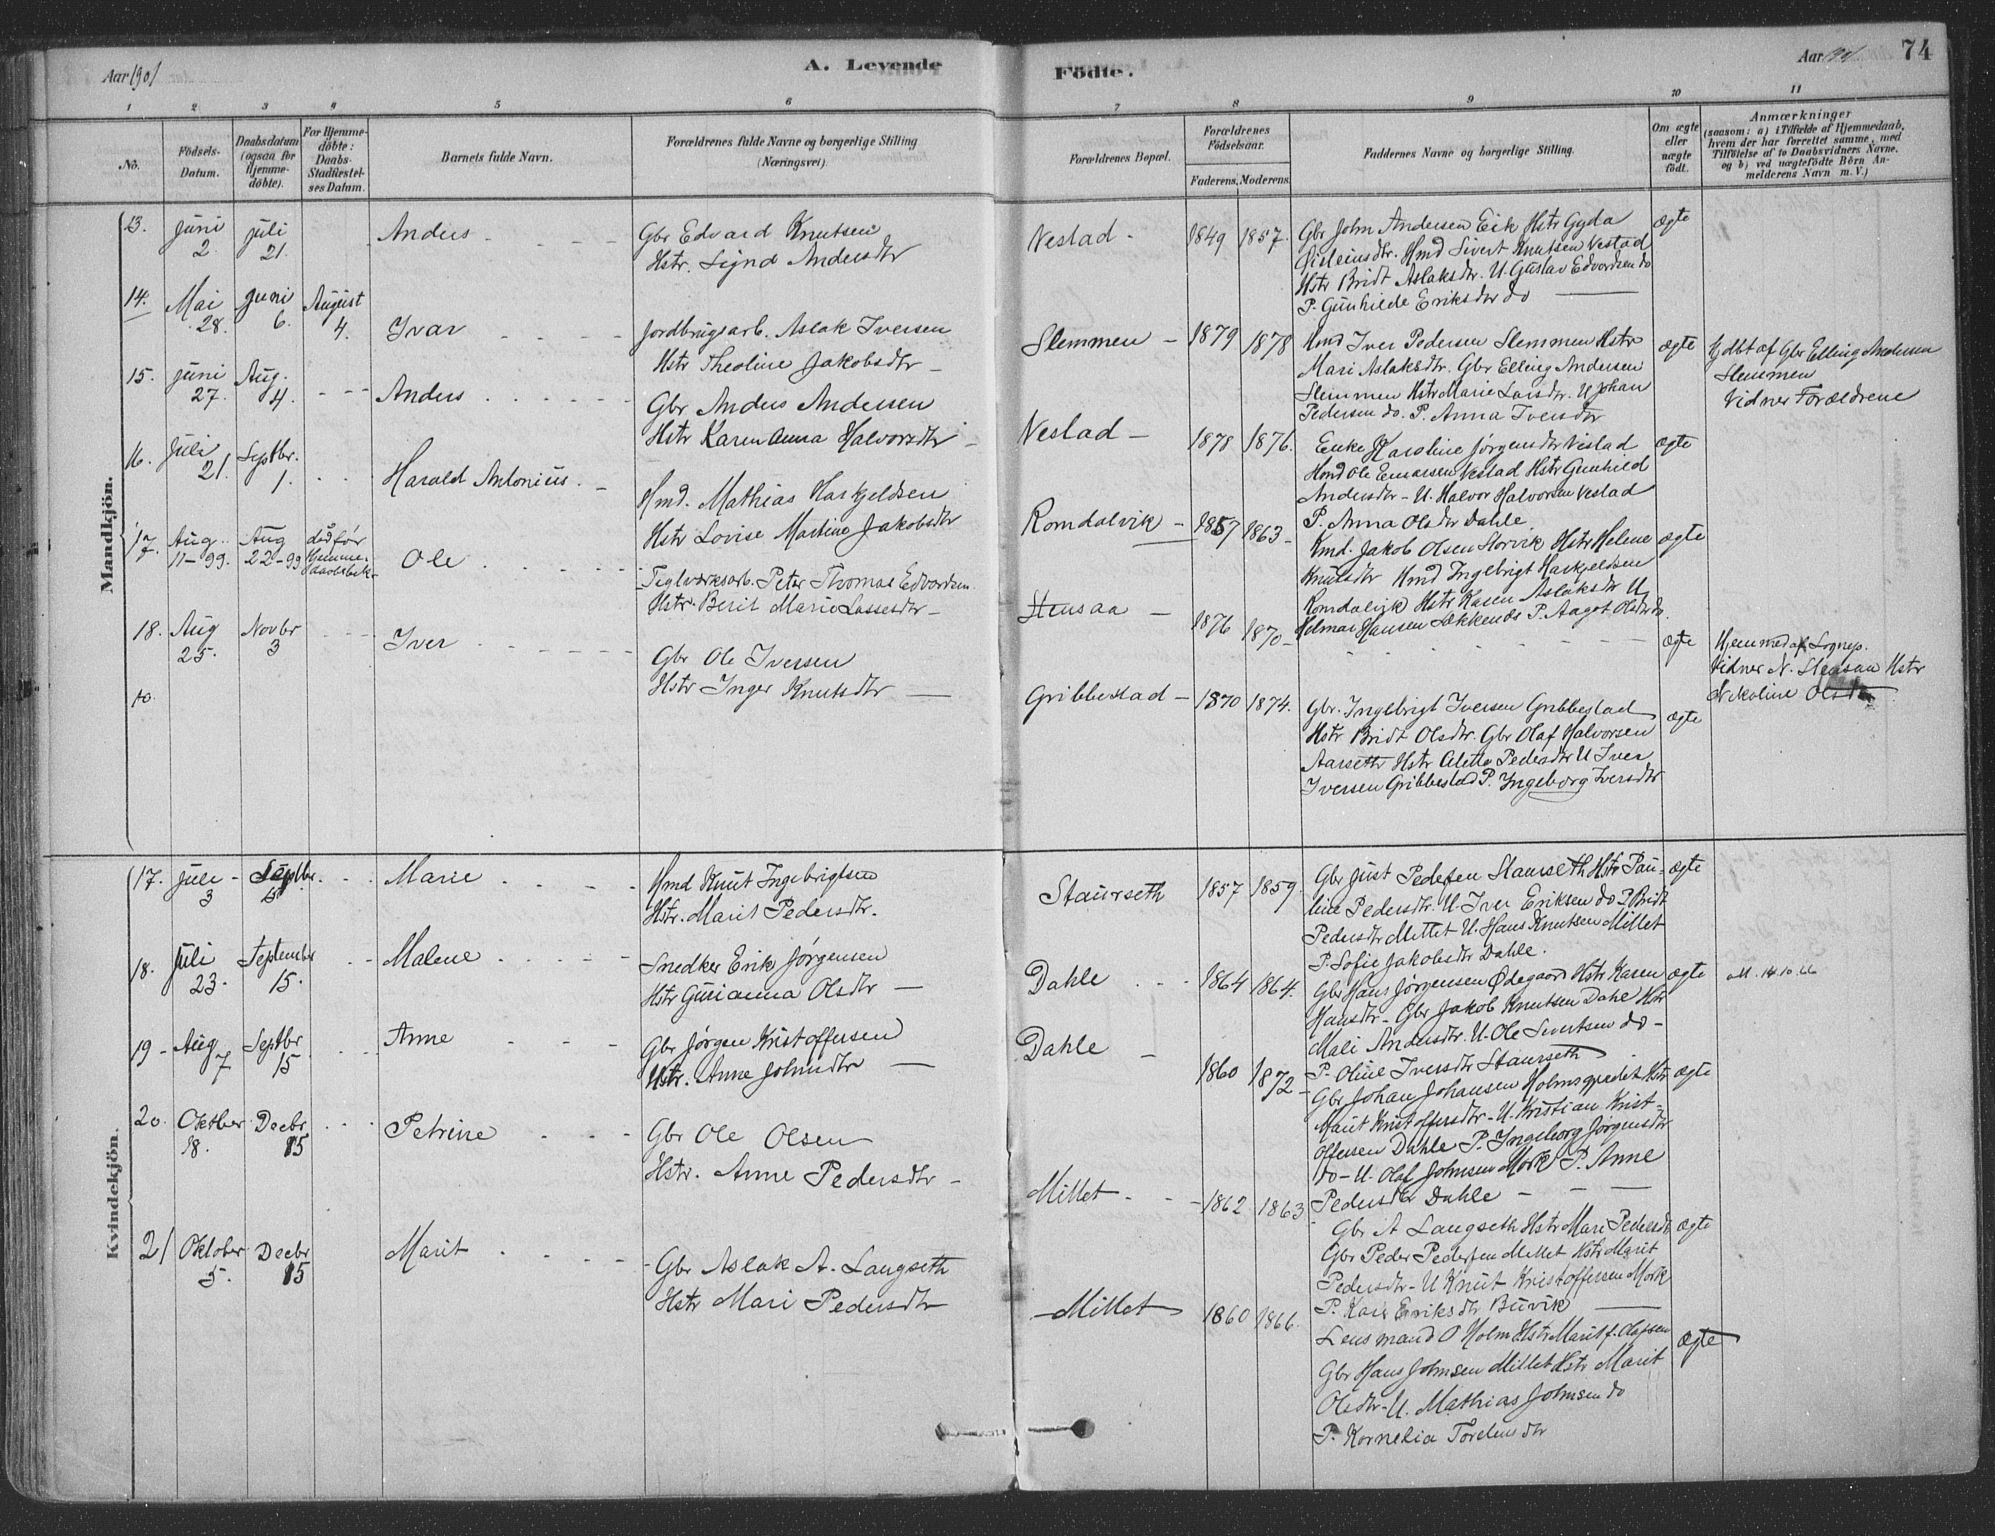 Aar 1901
A. Levende
Födte.
Aar 1901
74
1 2 3 4 5 6 7 8 9 10 11
No.
Födsels-
Datum.
Daabsdatum
(ogsaa for
Hjemme-
döbte).
For Hjemme-
döbte:
Daabs-
Stadfæstel-
ses Datum.
Barnets fulde Navn.
Forældrenes fulde Navne og borgerlige Stilling
(Næringsvei).
Forældrenes Bopæl.
Forældrenes
Födselsaar.
Faderens. Moderens.
Faddernes Navne og borgerlige Stilling.
Om ægte
eller
uægte
födt.
Anmærkninger
(saasom: a) i Tilfælde af Hjemmedaab,
hvem der har forrettet samme, med
Tilföielse af to Daabsvidners Navne,
og b) ved uægtefödte Börn An-
melderens Navn m. V.)
Mandkjön.
13. Juni 2. Juli 21. Anders
Gbr Edvard Knutsen
Hstr. Signe Andersdtr
Nestad 1849 1857.
Gbr John Andersen Eik Hstr Gyda
Øisteinsdtr. Hmd Sivert Knutsen Vestad
Hstr Bridt Aslaksdtr. U. Gustav Edvardsen do
P. Gunhilde Eriksdtr do
ægte
14. Mai 28. Juni 6. August 4. Ivar
Jordbrugsarb. Aslak Iversen
Hstr Theoline Jakobsdtr
Slemmen 1879 1878
Hmd Iver Pedersen Slemmen Hstr
Mari Aslaksdtr. Gbr Elling Andersen
Slemmen Hstr Marie Larsdtr. U Johan
Pedersen do. P. Anna Iversdtr
ægte
Hjdbt af Gbr Elling Andersen
Slemmen
Vidner Forældrene
15. Juni 27. Aug. 4. Anders
Gbr Anders Andersen
Hstr Karen Anna Halvorsdtr
Nestad 1878 1876.
Enke Karoline Jørgensdtr Vestad
Hmd Ole Einarsen Vestad Hstr Gunhild
Andersdtr - U. Halvor Halvorsen Vestad
P. Anna Olsdtr Dahle
ægte
16. Juli 21. Septbr. 1. Harald Antonius
Hmd. Mathias Haskjeldsen
Hstr Lovise Martine Jakobsdtr
Romdalvik 1867 1863
Kmd. Jakob Olsen Storvik Hstr Helene
Knutsdtr Hmd Ingebrigt Haskjeldsen
Romdalvik Hstr Karen Aslaksdtr U
Helmar Hansen Sekkenes P. Aagot Olsdtr do.
ægte
17. Aug. 11-99. Aug 22-99 død før
Hjemme-
daabsbek.
Ole
Teglværksarb. Peter Thomas Edvardsen
Hstr. Berit Marie Lassesdtr
Stensaa 1876 1870
ægte
Hjemmed. af Sognep.
Vidner N. Stensaa Hstr
Nekoline Olsdtr
18. Aug 25. Novbr 3 Iver
Gbr Ole Iversen
Hstr Inger Knutsdtr
Gribbestad 1870 1874.
Gbr. Ingebrigt Iversen Gribbestad
Hstr Bridt Olsdtr. Gbr Olaf Halvorsen
Aarseth Hstr Alette Pedersdtr U Iver
Iversen Gribbestad P. Ingeborg Iversdtr
ægte
Kvindekjön.
17. Juli 3 Septbr. Marie
Hmd Knut Ingebrigtsen
Hstr. Marit Pedersdtr.
Staurseth 1857 1859
Gbr Just Pedersen Staurseth Hstr Pau-
line Pedersdtr. U. Iver Eriksen do P Bridt
Pedersdtr Mittet U. Hans Knutsen Millet
P. Sofie Jakobsdtr Dahle.
ægte
18. Juli 23. September 15. Malene
Snedker Erik Jørgensen
Hstr Gurianna Olsdtr
Dahle 1864 1864.
Gbr Hans Jørgensen Ødegaard Hstr Karen
Hansdtr - Gbr Jakob Knutsen Dahle Hstr
Mali Andersdtr. U. Ole Sivertsen do -
P. Oline Iversdtr Staurseth
ægte
14.10.66
19 - Aug 7 Septbr 15 Anne
Gbr Jørgen Kristoffersen
Hstr. Anne Johnsdtr
Dahle 1860 1872
Gbr Johan Johansen Holmsgjædet Hstr
Marit Kristoffersdtr - U. Kristian Krist-
offersen Dahle P. Ingeborg Jørgensdtr
do - U. Olaf Johnsen Mork P. Anne
Pedersdtr Dahle
ægte
20. Oktber 18. Decbr 15 Petrine
Gbr Ole Olsen
Hstr. Anne Pedersdtr
Millet 1862 1863
Gbr A Langseth Hstr Mari Pedersdtr
Gbr Peder Pedersen Millet Hstr Marit
Pedersdtr - U Knut Kristoffersen Mork
P. Kari Eriksdtr Buvik
ægte
21 Oktober 5. Decbr 15 Marit
Gbr Aslak A. Langseth
Hstr Mari Pedersdtr
Millet 1860 1866.
Lensmand O Holm Hstr Marit f. Olafsen
Gbr Hans Johnsen Millet Hstr Marit
Olsdtr - U. Mathias Johnsen do
P. Kornelia Torelunsdtr
ægte